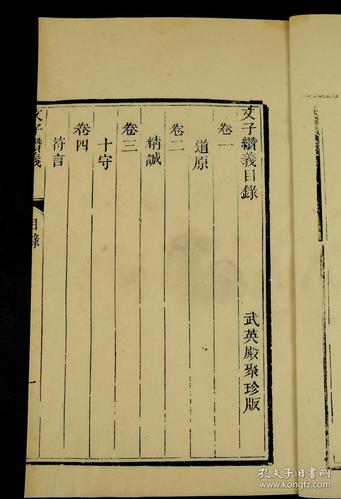 文子纘義目錄
武英殿聚珍版
卷一
道原
卷二
精誠
卷三
十守
卷四
符言
文子纘義
目錄
一
孔夫子旧书网
www.kongfz.com